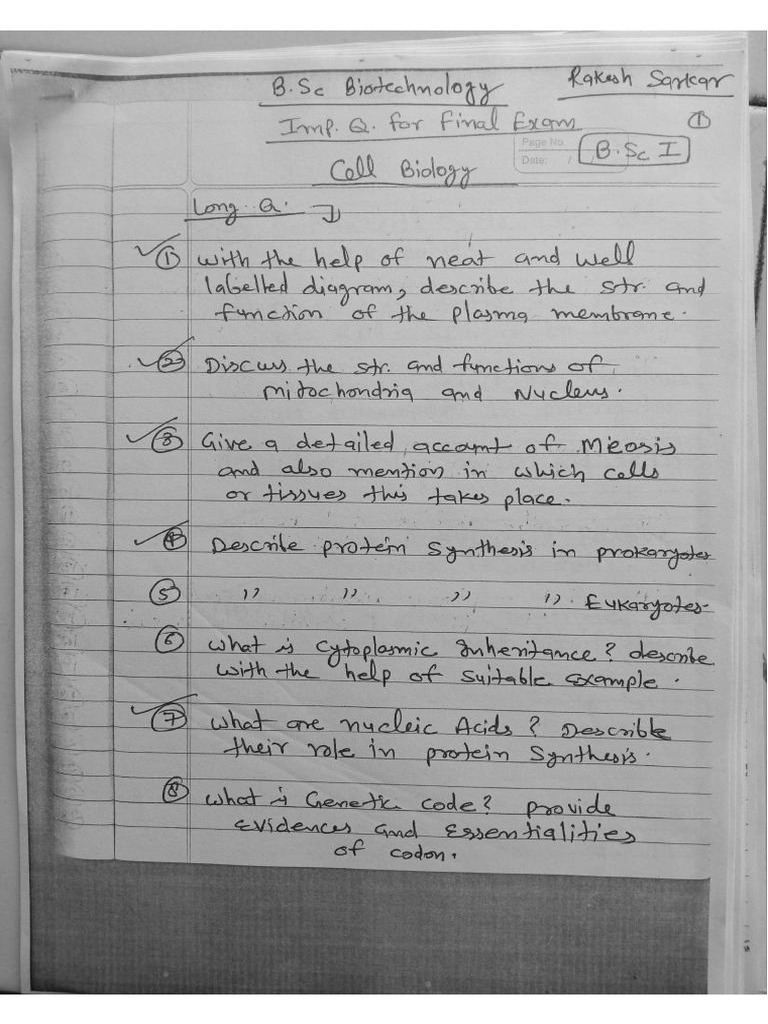 B.Sc Biotechnology Rakesh Sarkar
Imp. Q. for Final Exam ①
Page No.
Date: / /
B.Sc I
Cell Biology
Long. Q.
① with the help of neat and well
labelled diagram, describe the str. and
function of the plasma membrane.
② Discuss the str. and functions of
mitochondria and Nucleus.
③ Give a detailed account of Meosis
and also mention in which cells
or tissues this takes place.
④ Describe protein synthesis in prokaryotes
⑤ " " " " Eukaryotes-
⑥ what is cytoplasmic Inheritance? describe
with the help of suitable example.
⑦ what are nucleic Acids? Describle
their role in protein Synthesis.
⑧ what is Genetic code? provide
Evidences and Essentialities
of codon.